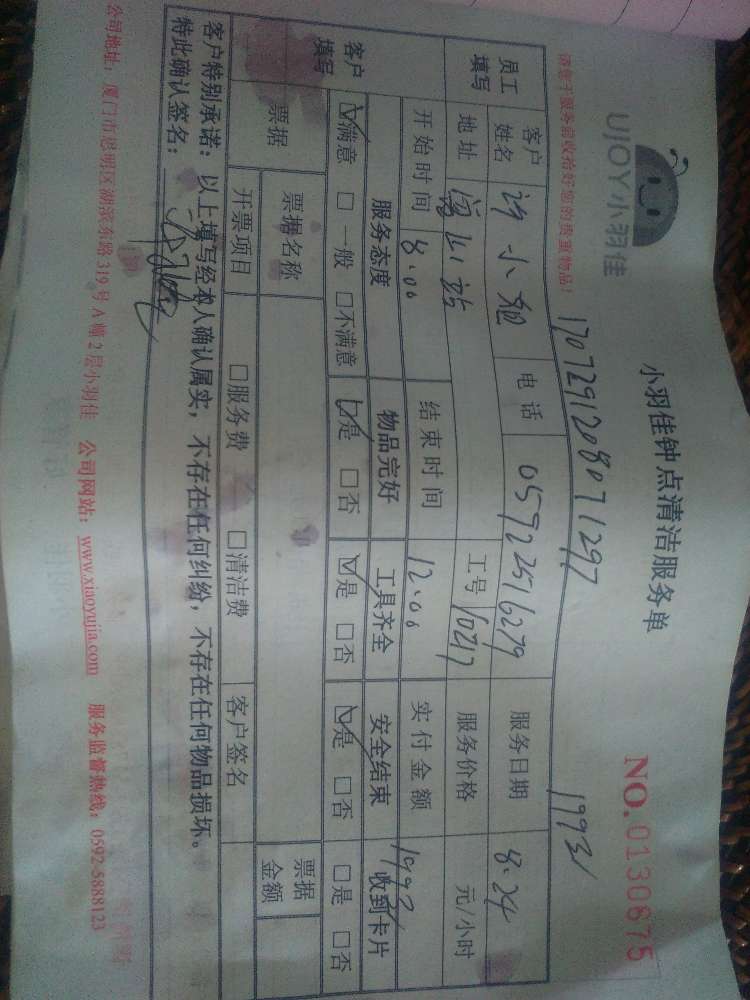 UJOY小羽佳
小羽佳钟点清洁服务单
NO.0130675
请您于服务前收拾好您的贵重物品!
1707291208071297
1993
员工填写
客户姓名 许小姐 电话 05922516279 服务日期 8.24
地址 工号 服务价格 元/小时
开始时间 8:00 结束时间 12:00 实付金额
客户填写
服务态度 物品完好 工具齐全 安全结束 收到卡片
☑满意 □一般 □不满意 ☑是 □否 ☑是 □否 ☑是 □否 □是 □否
票据 票据名称 票据金额
开票项目 □服务费 □清洁费 客户签名
客户特别承诺：以上填写经本人确认属实，不存在任何纠纷，不存在任何物品损坏。
特此确认签名：
公司地址：厦门市思明区湖滨东路319号A幢2层小羽佳 公司网站：www.xiaoyujia.com 服务监督热线：0592-5888123